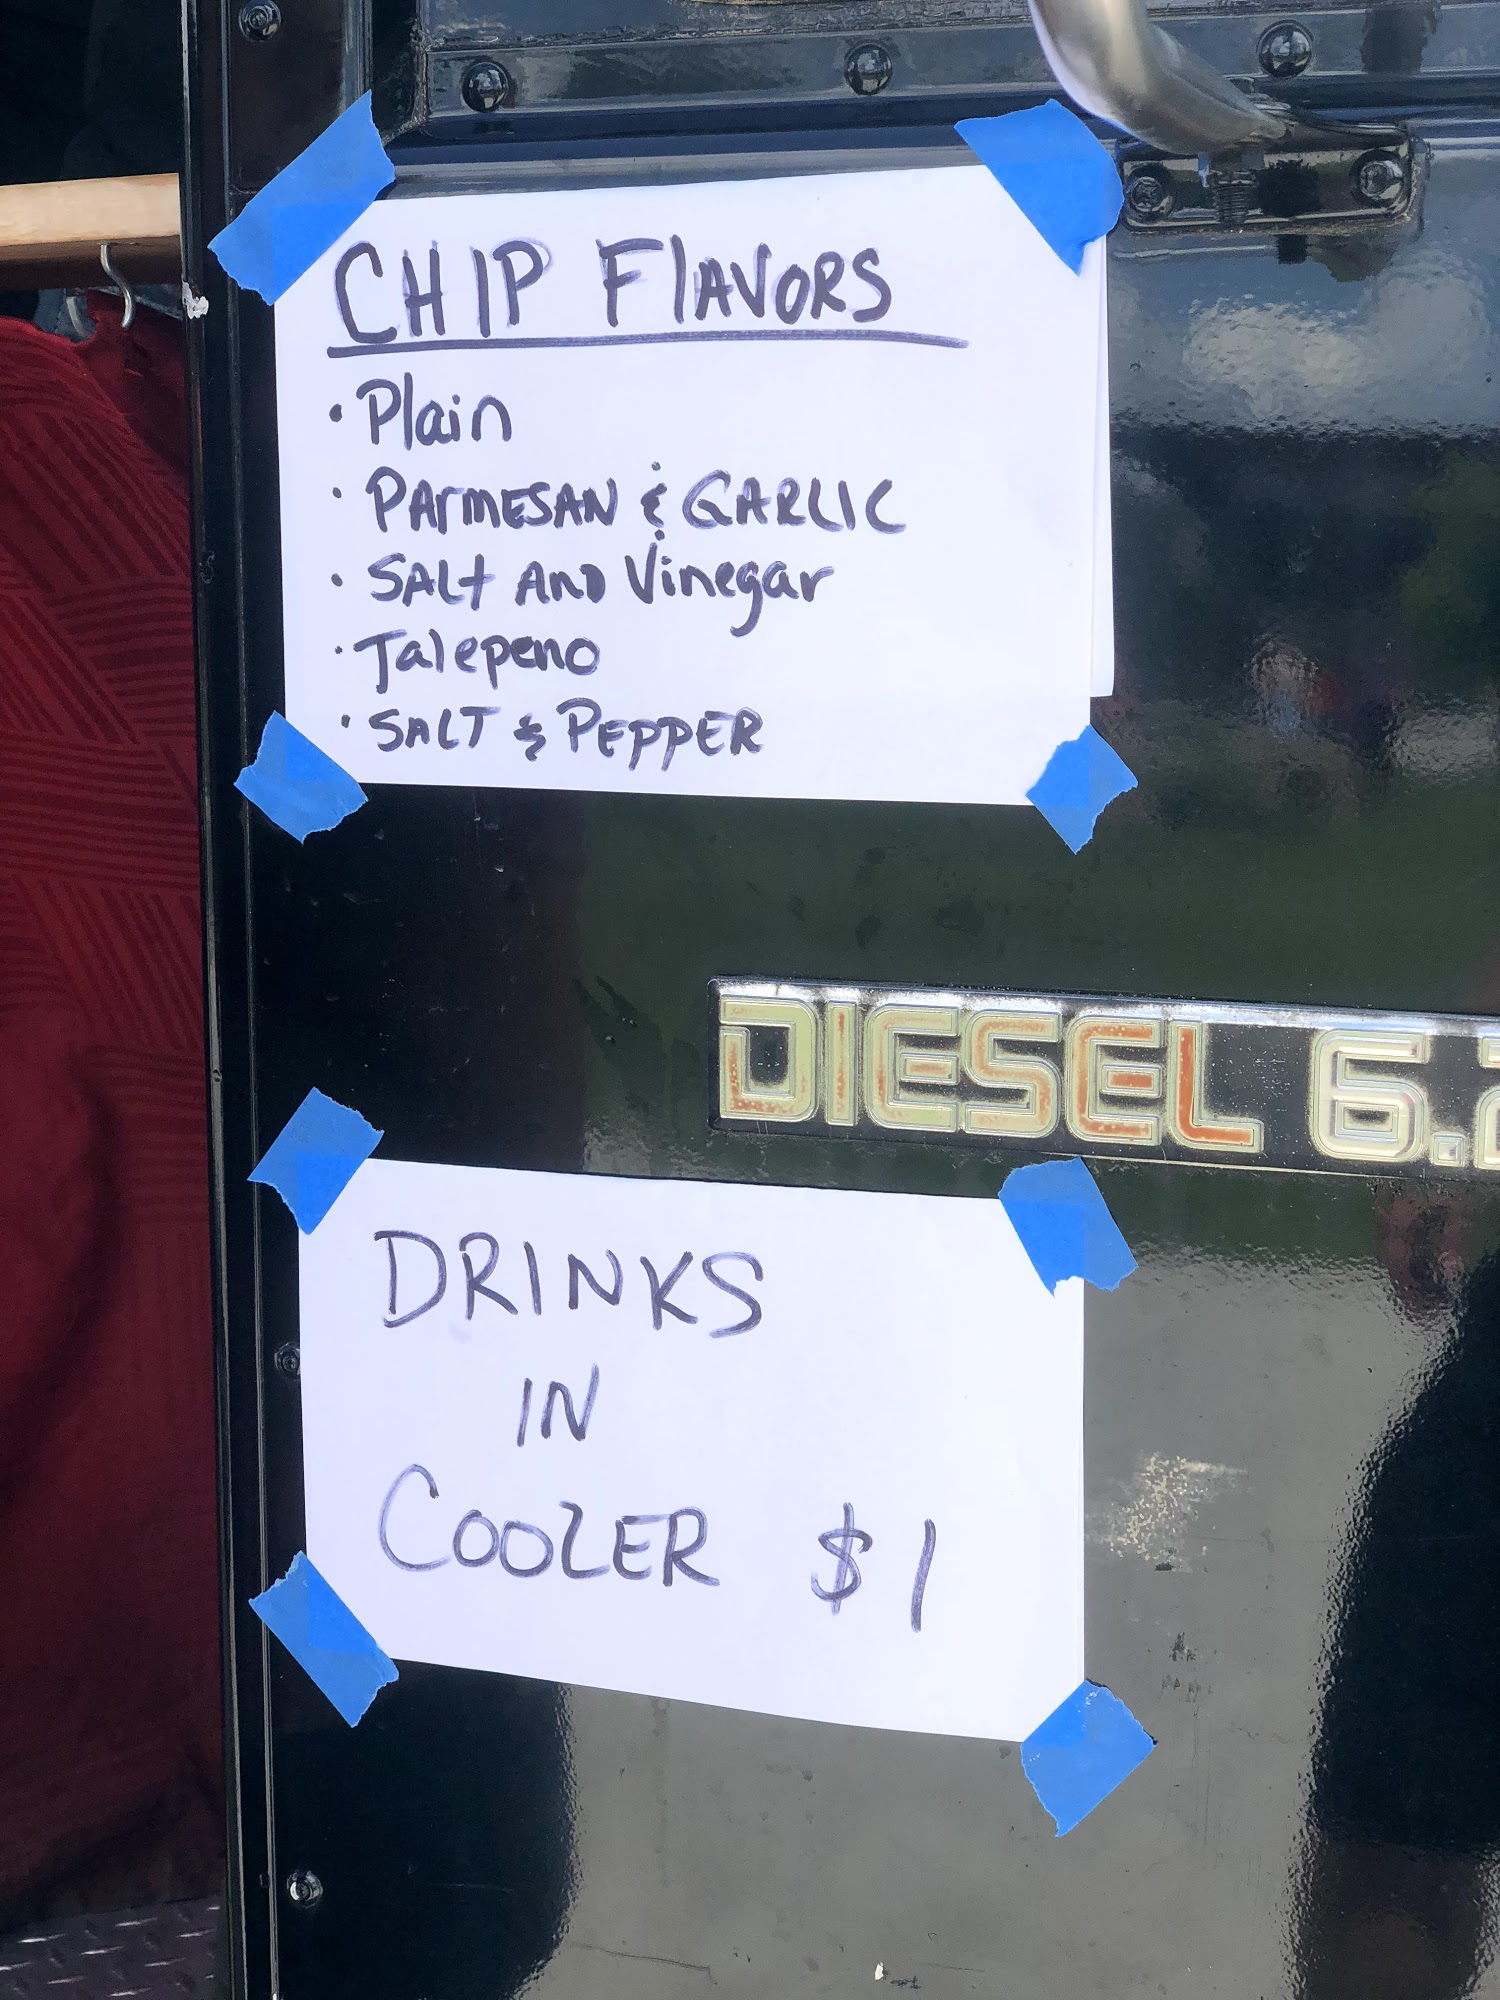 CHIP FlAVORS
• Plain
• PArmESAN & GARLIC
• SALt AND Vinegar
• Jalepeno
• SALT & PEPPER
DIESEL 6.2
DRINKS
IN
COOLER $1